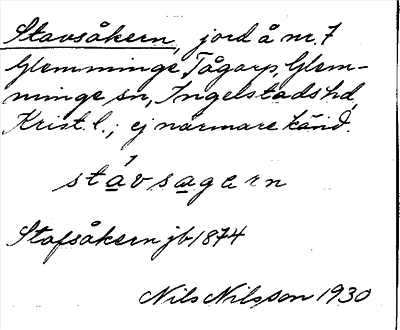 Stavsåkern, jord å nr. 7
Glemminge, Tågarp, Glem-
minge sn, Ingelstads hd,
Krist. l.; ej närmare känd.
stávsagarn
Stafsåkern jb 1874
Nils Nilsson 1930